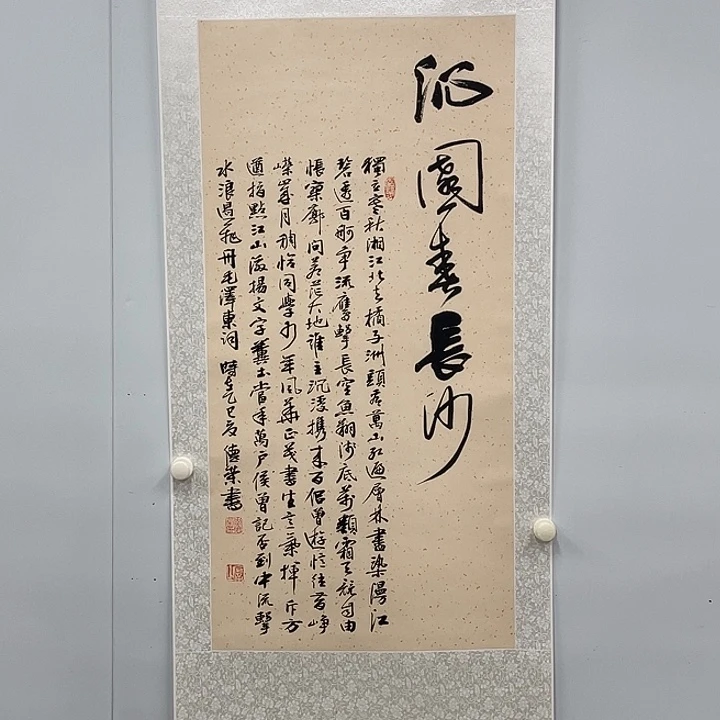 沁園春長沙
獨立寒秋湘江北去橘子洲頭看萬山紅遍層林盡染漫江
碧透百舸爭流鷹擊長空魚翔淺底萬類霜天競自由
悵寥廓問蒼茫大地誰主沉浮携來百侶曾遊憶往昔崢
嶸歲月稠恰同學少年風華正茂書生意氣揮斥方
遒指點江山激揚文字糞土當年萬戶侯曾記否到中流擊
水浪遏飛舟毛澤東詞 時在乙巳夏德榮書